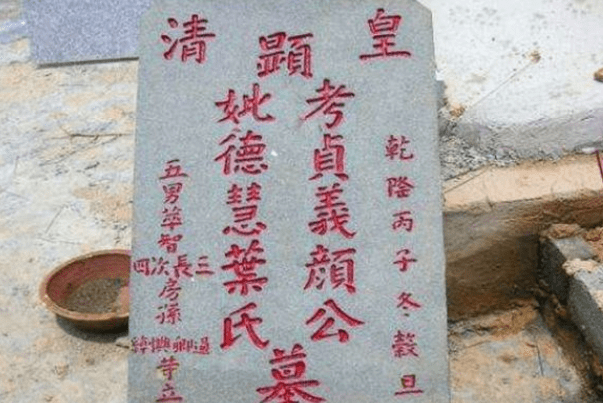 皇 顯 清
乾隆丙子冬穀旦
考貞義顏公
妣德慧葉氏
墓
五男萃智
三長次四
房孫
等立